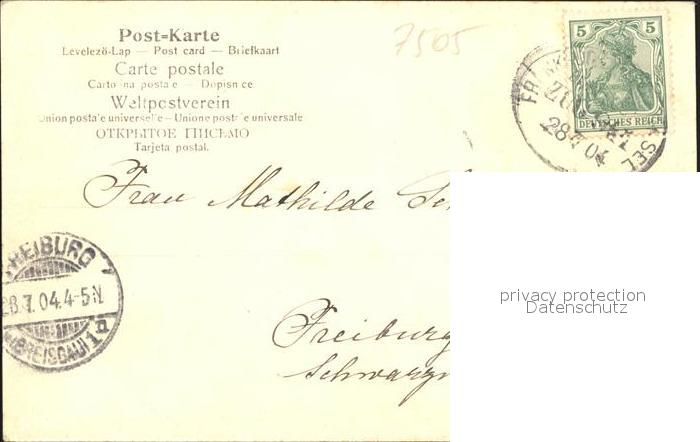 Post=Karte
Levelező-Lap — Post card — Briefkaart
Carte postale
Cartolina postale — Dopisnice
Weltpostverein
Union postale universelle — Unione postale universale
ОТКРЫТОЕ ПИСЬМО
Tarjeta postal.
7505
5 5
DEUTSCHES REICH
28 7 04
Frau Mathilde
FREIBURG
28.7.04.4-5N
(BREISGAU) 1a
Freiburg
privacy protection
Datenschutz